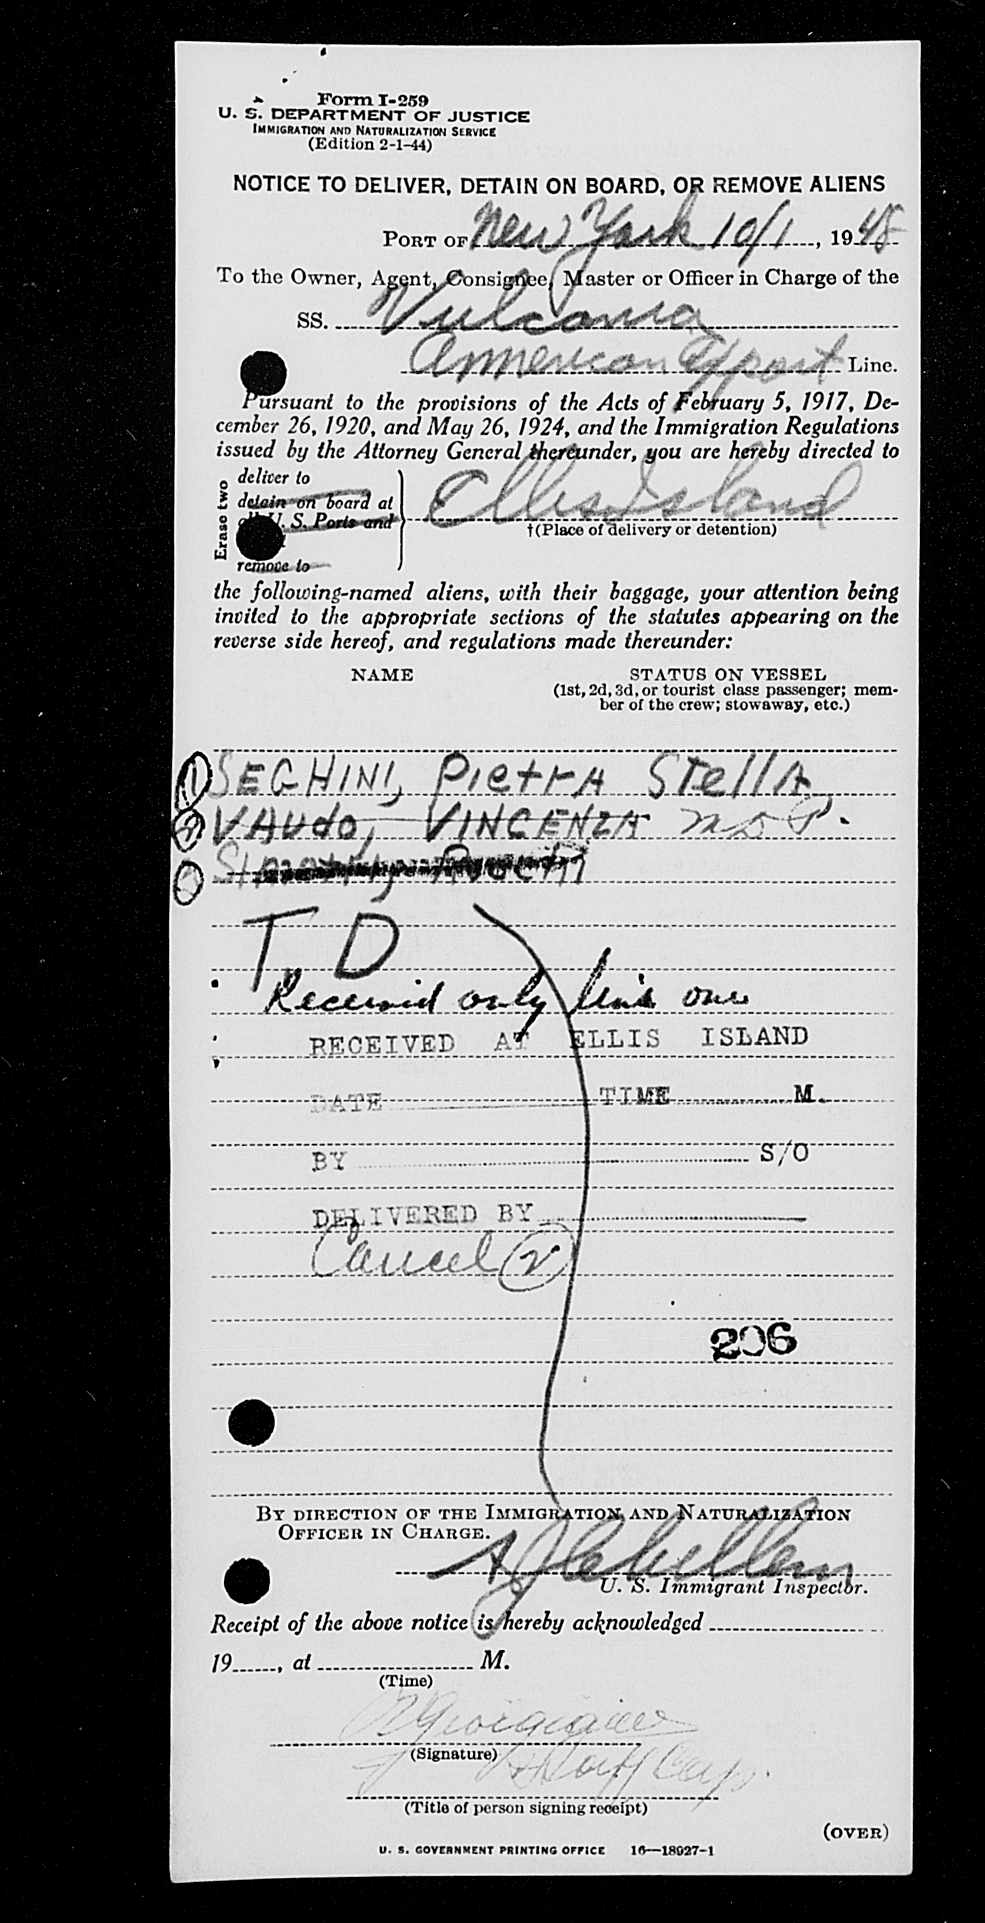 Form I-259
U. S. DEPARTMENT OF JUSTICE
IMMIGRATION AND NATURALIZATION SERVICE
(Edition 2-1-44)
NOTICE TO DELIVER, DETAIN ON BOARD, OR REMOVE ALIENS
PORT OF New York 10/1, 1948
To the Owner, Agent, Consignee, Master or Officer in Charge of the
SS. Vulcania
American Export Line.
Pursuant to the provisions of the Acts of February 5, 1917, De-
cember 26, 1920, and May 26, 1924, and the Immigration Regulations
issued by the Attorney General thereunder, you are hereby directed to
Erase two
deliver to
detain on board at
U. S. Ports and
remove to
Ellis Island
†(Place of delivery or detention)
the following-named aliens, with their baggage, your attention being
invited to the appropriate sections of the statutes appearing on the
reverse side hereof, and regulations made thereunder:
NAME STATUS ON VESSEL
(1st, 2d, 3d, or tourist class passenger; mem-
ber of the crew; stowaway, etc.)
(1) SEGHINI, PietrA StellA
(2) VAudo, VINCENZA
T. D
Received only line one
RECEIVED AT ELLIS ISLAND
DATE TIME M.
BY S/O
DELIVERED BY
Cancel (2)
206
BY DIRECTION OF THE IMMIGRATION AND NATURALIZATION
OFFICER IN CHARGE.
U. S. Immigrant Inspector.
Receipt of the above notice is hereby acknowledged
19, at M.
(Time)
(Signature)
Staff Cap.
(Title of person signing receipt)
(OVER)
U. S. GOVERNMENT PRINTING OFFICE 16—18027-1